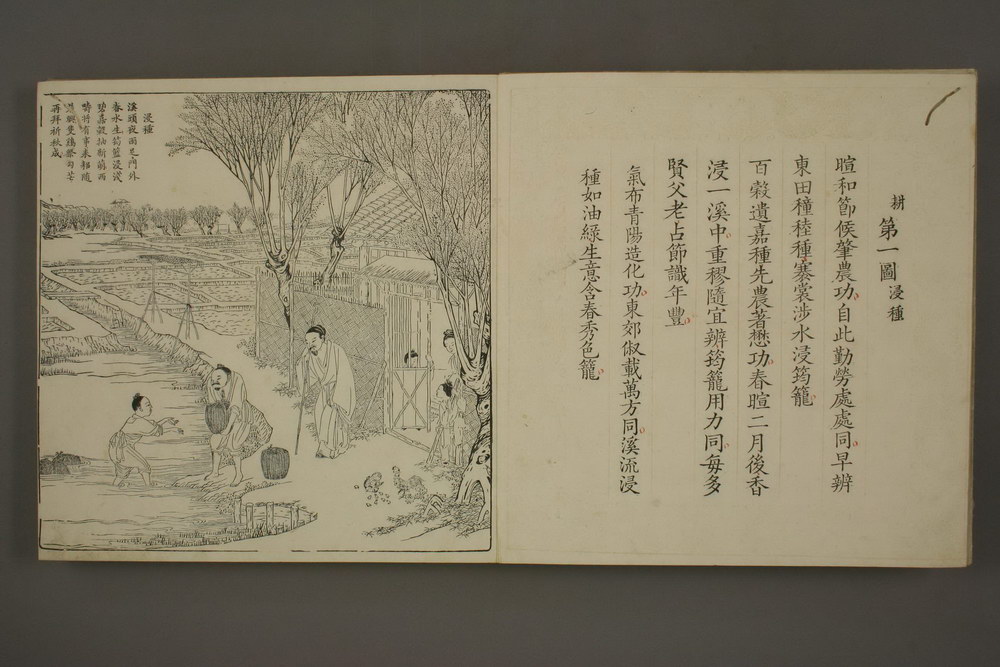 耕第一圖浸種
暄和節候肇農功自此勤勞處處同早辨
東田穜稑種褰裳涉水浸筠籠
百穀遺嘉種先農著懋功春暄二月後香
浸一溪中重穋隨宜辨筠籠用力同每多
賢父老占節識年豐
氣布青陽造化功東郊俶載萬方同溪流浸
種如油綠生意含春秀色籠
浸種
溪頭夜雨足門外
春水生筠籃浸淺
碧嘉穀抽新萌西
疇將有事耒耜隨
晨興隻雞祭句芒
再拜祈秋成